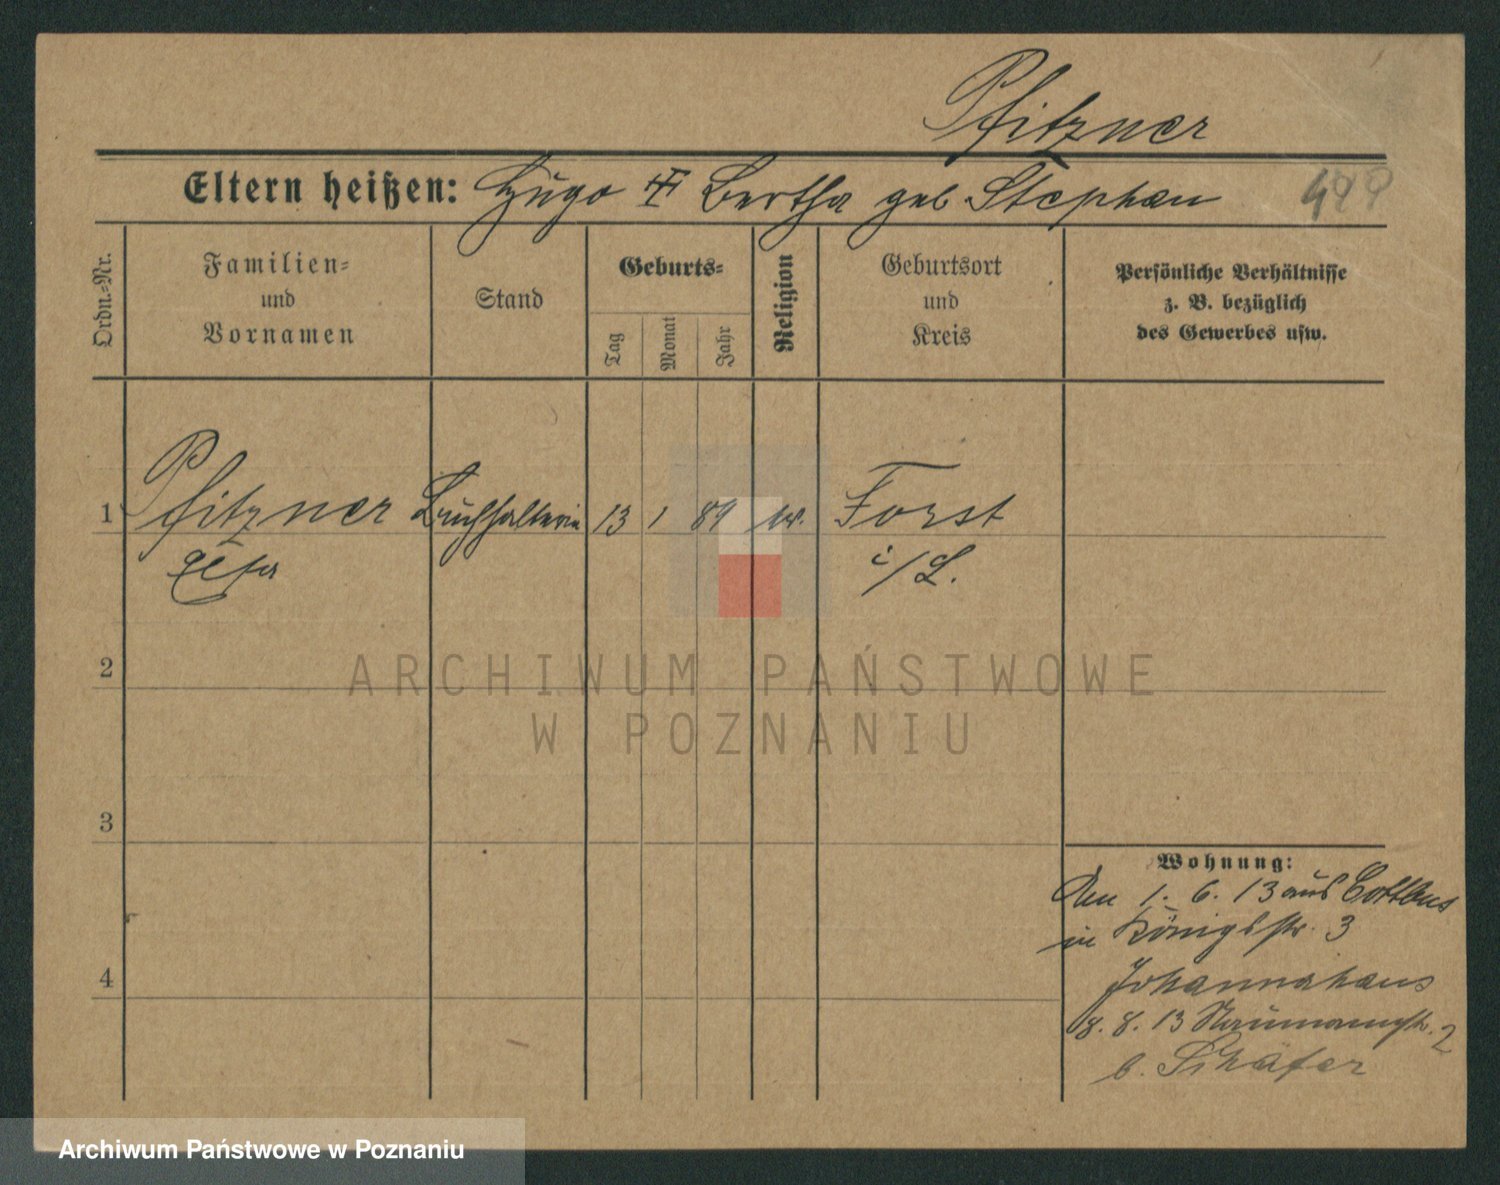 Pfitzner
Eltern heißen: Hugo Bertha geb Stephan
Ordn.-Nr.
Familien-
und
Vornamen
Stand
Geburts-
Tag
Monat
Jahr
Religion
Geburtsort
und
Kreis
Persönliche Verhältnisse
z. B. bezüglich
des Gewerbes usw.
1 Pfitzner Buchhalterin 13 1 89 Forst
i/L.
2
ARCHIWUM PAŃSTWOWE
W POZNANIU
3
4
Wohnung:
Den 1. 6. 13 aus Cottbus
in Königsstr. 3
Johannahaus
8. 8. 13 Naumannstr. 2
b. Schäfer
Archiwum Państwowe w Poznaniu